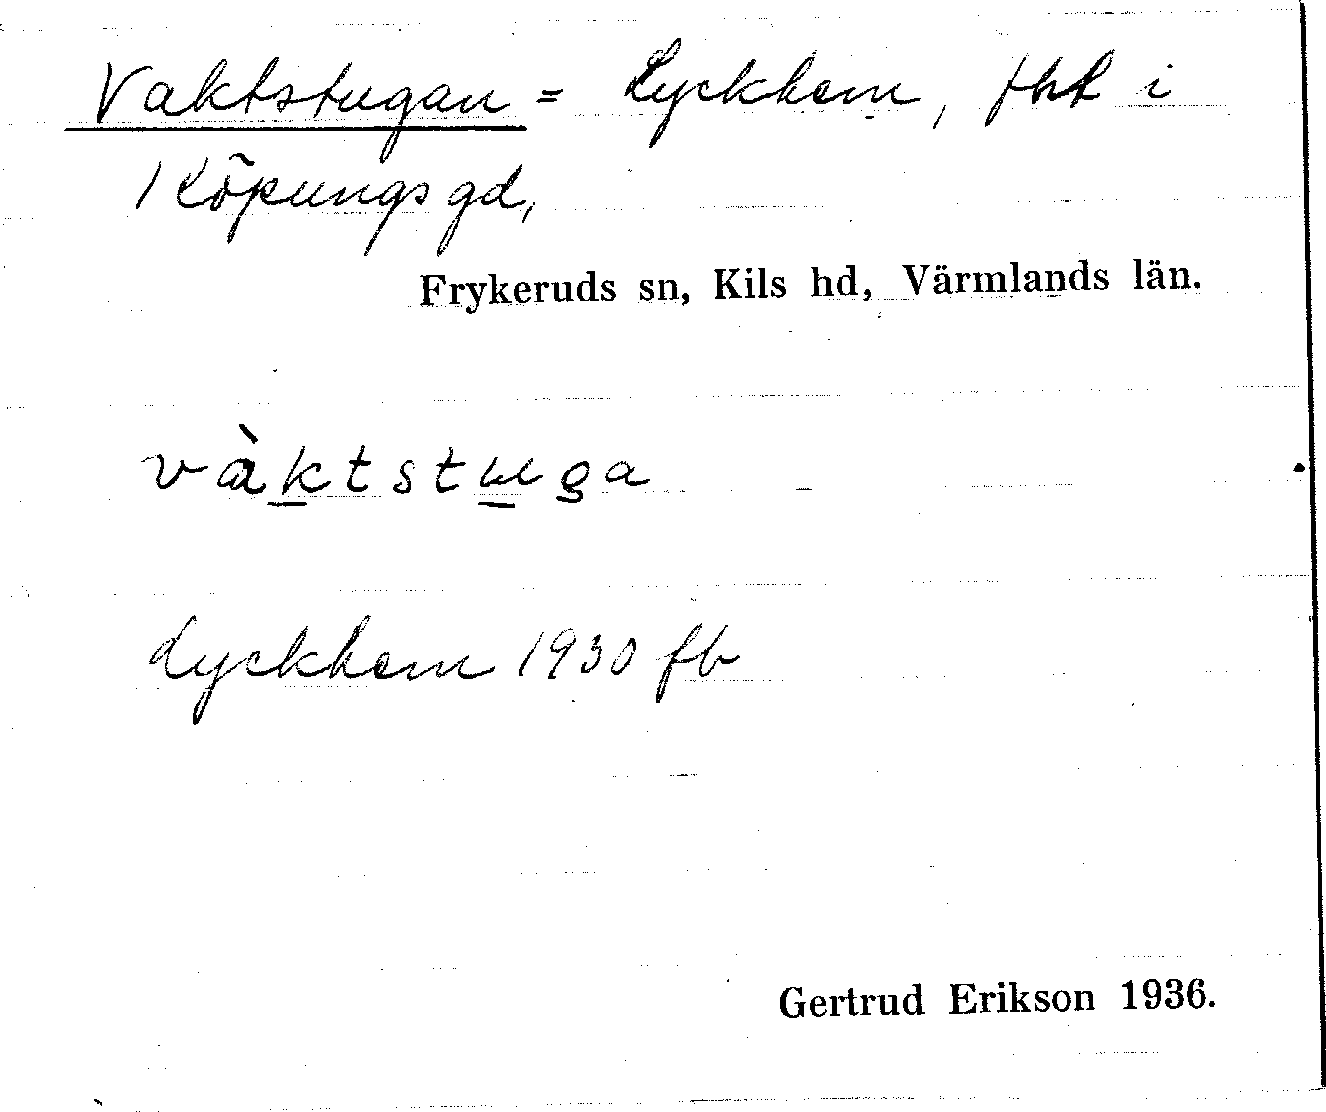 Vaktstugan = Lyckhem, tht i
Köpungsgd,
Frykeruds sn, Kils hd, Värmlands län.
vàktstuga
Lyckhem 1930 fb
Gertrud Erikson 1936.